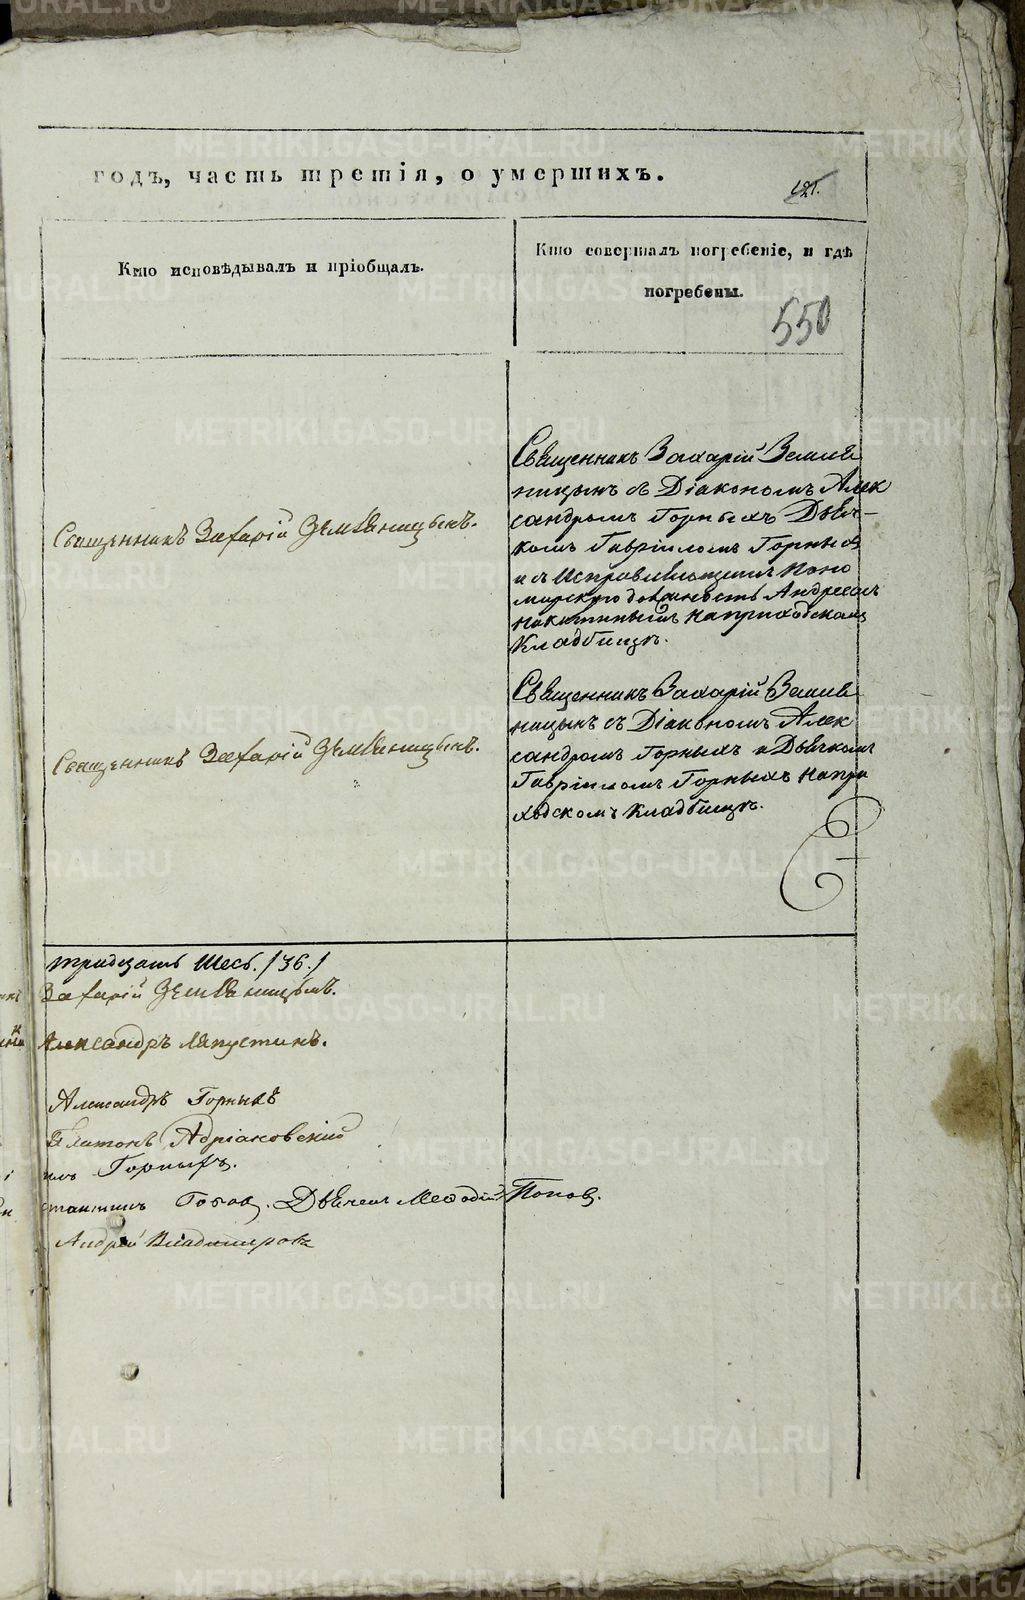 годъ, часть третія, о умершихъ.
121.
Кто исповѣдывалъ и пріобщалъ.
Кто совершалъ погребеніе, и гдѣ
погребены.
550
Священникъ Захарій Земляницынъ.
Священникъ Захарій Земля
ницынъ съ Діакономъ Алек
сандромъ Горныхъ Дьяч-
комъ Гавріиломъ Горныхъ
и съ Исправляющимъ Поно
марскую должность Андреемъ
Никитинымъ на приходскомъ
Кладбищѣ.
Священникъ Захарій Земляницынъ.
Священникъ Захарій Земля
ницынъ съ Діакономъ Алек
сандромъ Горныхъ и Дьячкомъ
Гавріиломъ Горныхъ на при
ходскомъ Кладбищѣ.
тридцать шесть /36./
Захарій Земляницынъ.
Александръ Ляпустинъ.
Александръ Горныхъ
Платонъ Адріановскій
илъ Горныхъ.
стантинъ Попов. Дьячекъ Меѳодій Попов.
Андрей Владимировъ
METRIKI.GASO-URAL.RU